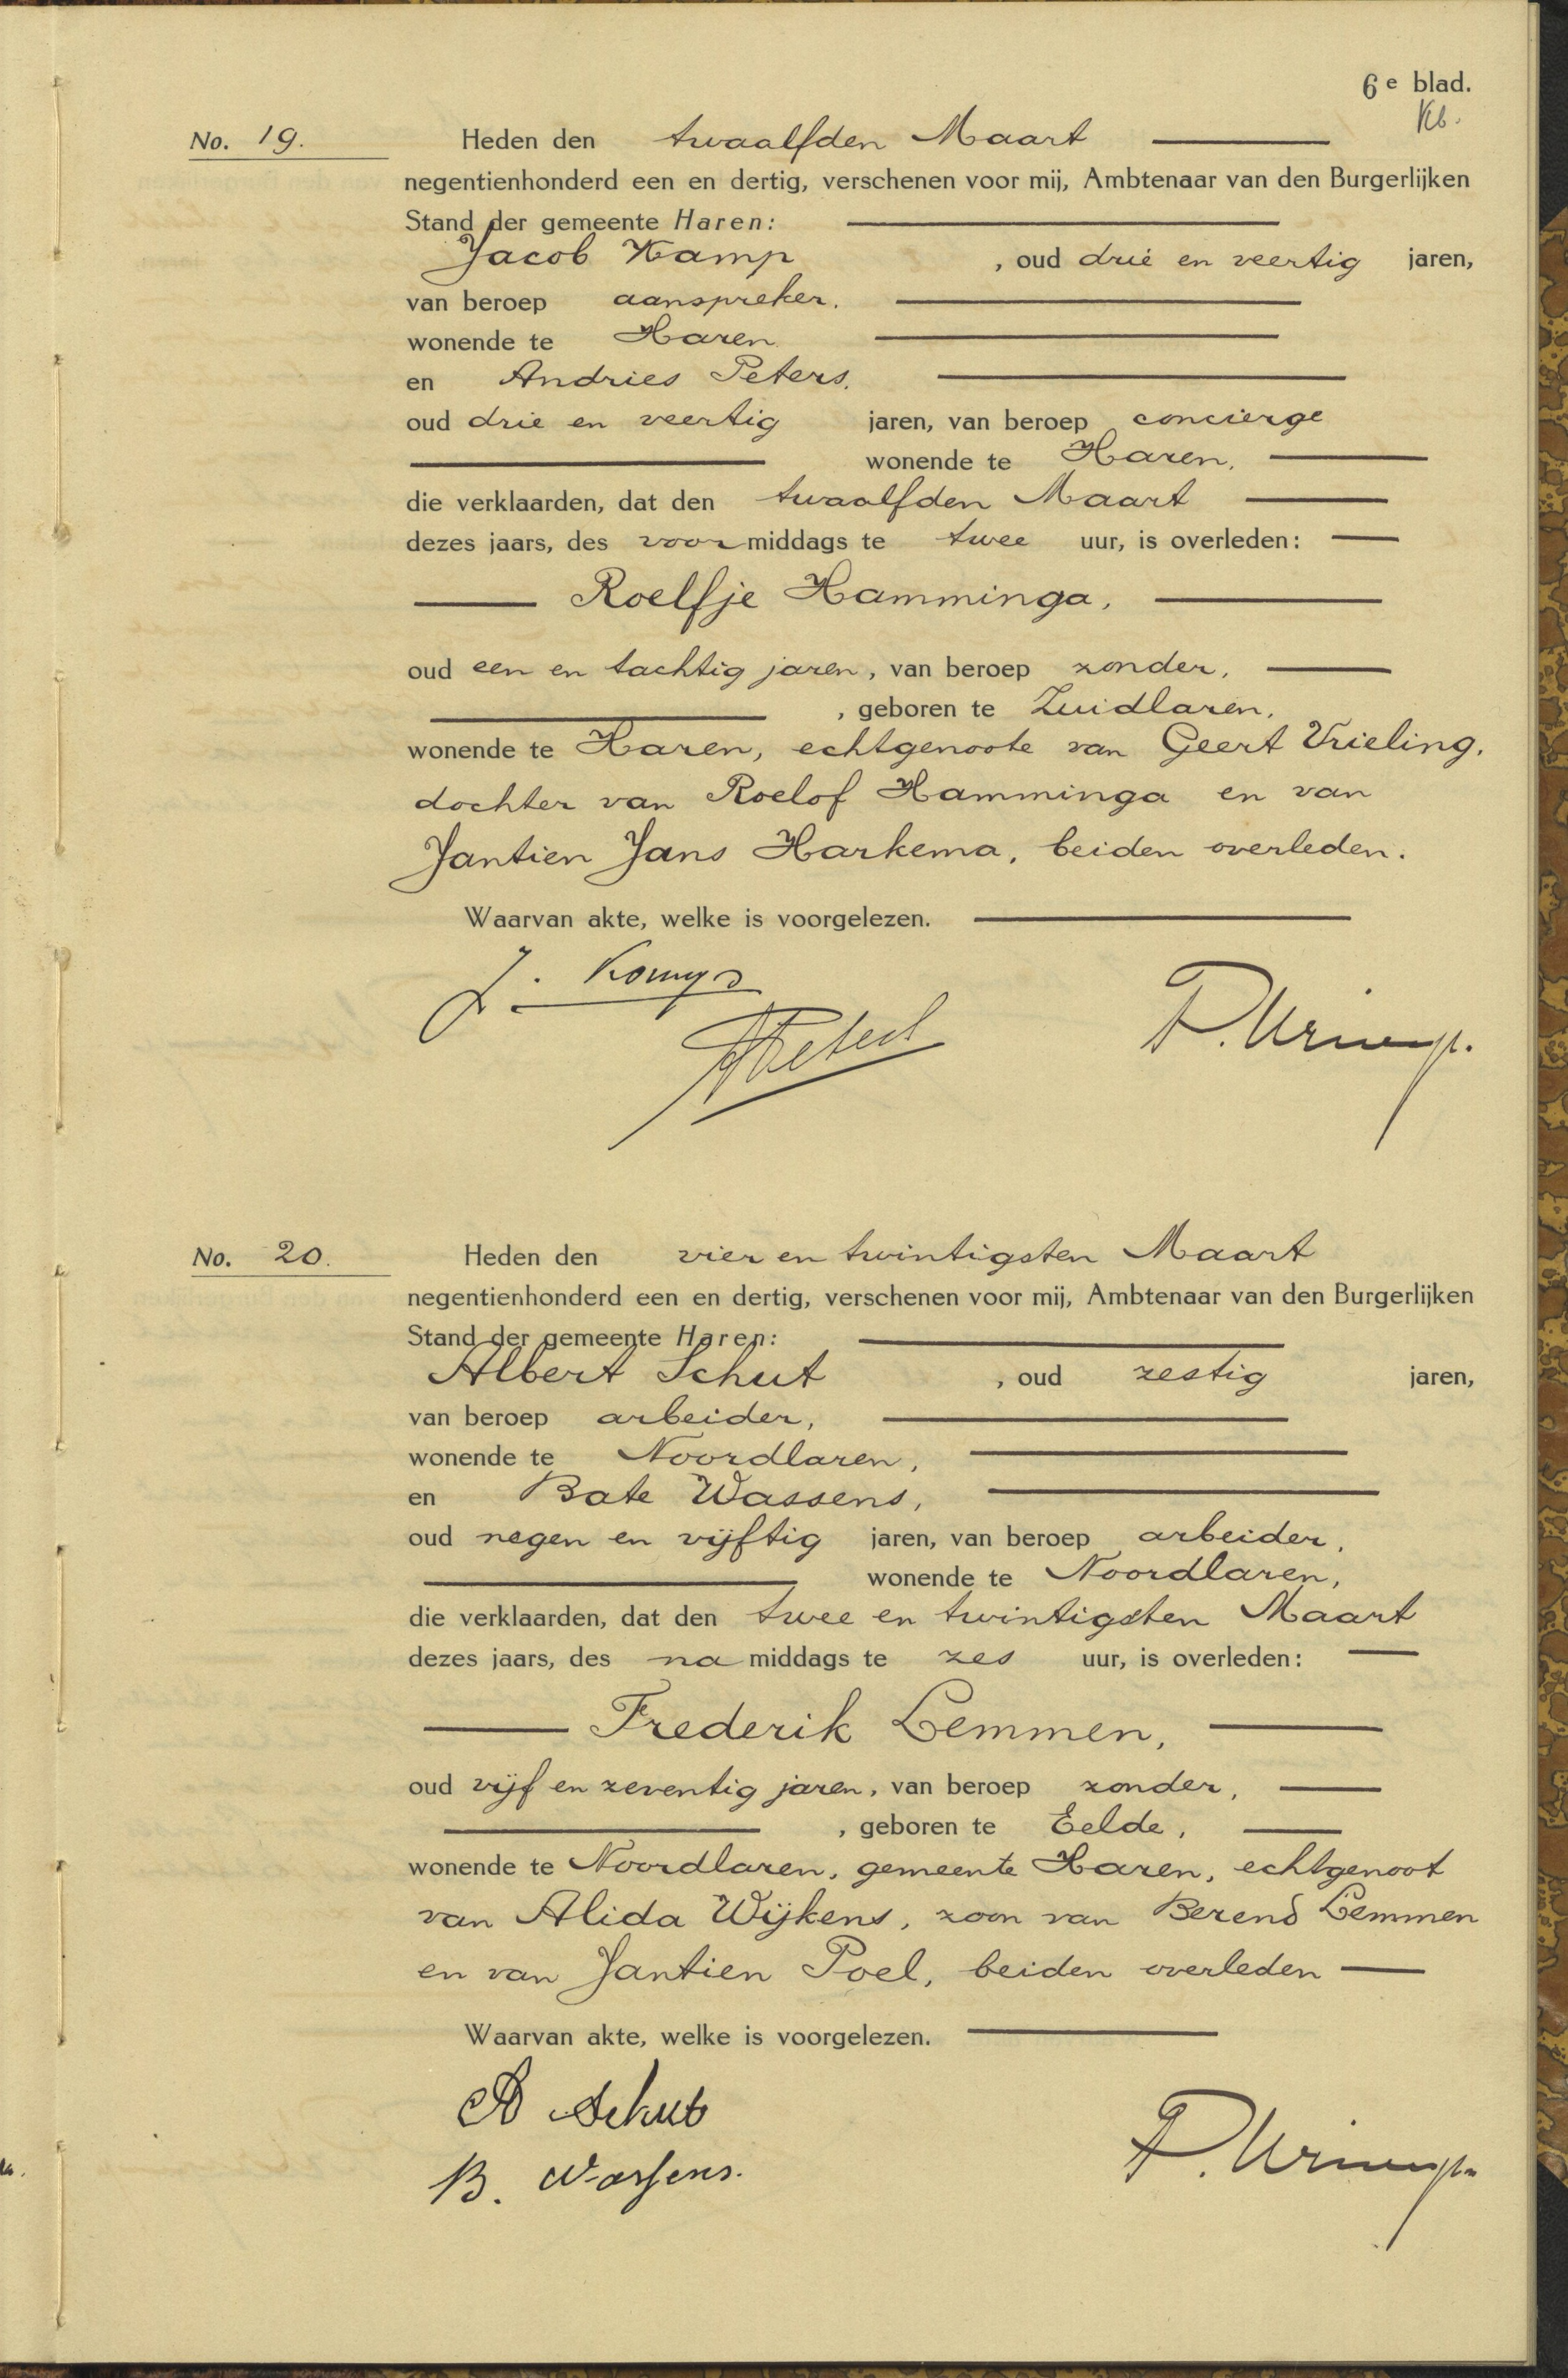 6e blad.
No. 19.
Heden den twaalfden Maart
negentienhonderd een en dertig, verschenen voor mij, Ambtenaar van den Burgerlijken
Stand der gemeente Haren:
Jacob Kamp , oud drie en veertig jaren,
van beroep aanspreker.
wonende te Haren
en Andries Peters.
oud drie en veertig jaren, van beroep concierge
wonende te Haren.
die verklaarden, dat den twaalfden Maart
dezes jaars, des voormiddags te twee uur, is overleden:
Roelfje Hamminga,
oud een en tachtig jaren, van beroep zonder,
, geboren te Zuidlaren,
wonende te Haren, echtgenoote van Geert Vrieling.
dochter van Roelof Hamminga en van
Jantien Jans Harkema, beiden overleden.
Waarvan akte, welke is voorgelezen.
J.
No. 20.
Heden den vier en twintigsten Maart
negentienhonderd een en dertig, verschenen voor mij, Ambtenaar van den Burgerlijken
Stand der gemeente Haren:
Albert Schut , oud zestig jaren,
van beroep arbeider,
wonende te Noordlaren,
en Bate Wassens,
oud negen en vijftig jaren, van beroep arbeider,
wonende te Noordlaren,
die verklaarden, dat den twee en twintigsten Maart
dezes jaars, des namiddags te zes uur, is overleden:
Frederik Lemmen,
oud vijf en zeventig jaren, van beroep zonder,
, geboren te Eelde,
wonende te Noordlaren, gemeente Haren, echtgenoot
van Alida Wijkens, zoon van Berend Lemmen
en van Jantien Poel, beiden overleden
Waarvan akte, welke is voorgelezen.
A Schut
B. Wassens.